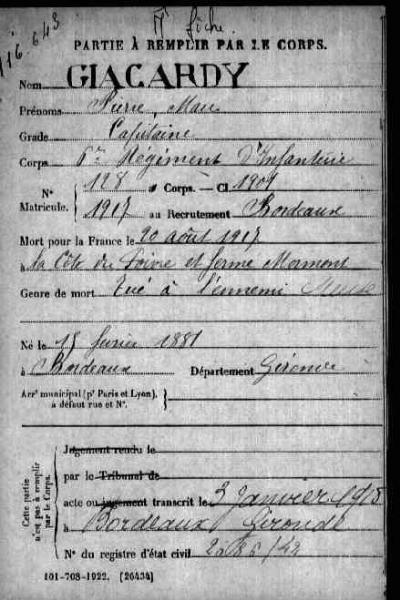 116.643
fiche
PARTIE À REMPLIR PAR LE CORPS.
Nom GIACARDY
Prénoms Pierre, Marc
Grade Capitaine
Corps 6me Régiment D'Infanterie
N° Matricule. { 128 au Corps. — Cl. 1901
1917 au Recrutement Bordeaux
Mort pour la France le 20 août 1917
à la Côte du Poivre et ferme Mormont
Genre de mort Tué à l'ennemi Meuse
Né le 15 février 1881
à Bordeaux Département Gironde
Arrt municipal (pr Paris et Lyon), à défaut rue et N°. }
Cette partie n'est pas à remplir par le Corps. {
Jugement rendu le
par le Tribunal de
acte ou jugement transcrit le 3 Janvier 1918
à Bordeaux Gironde
N° du registre d'état civil
101-708-1922. [26434]